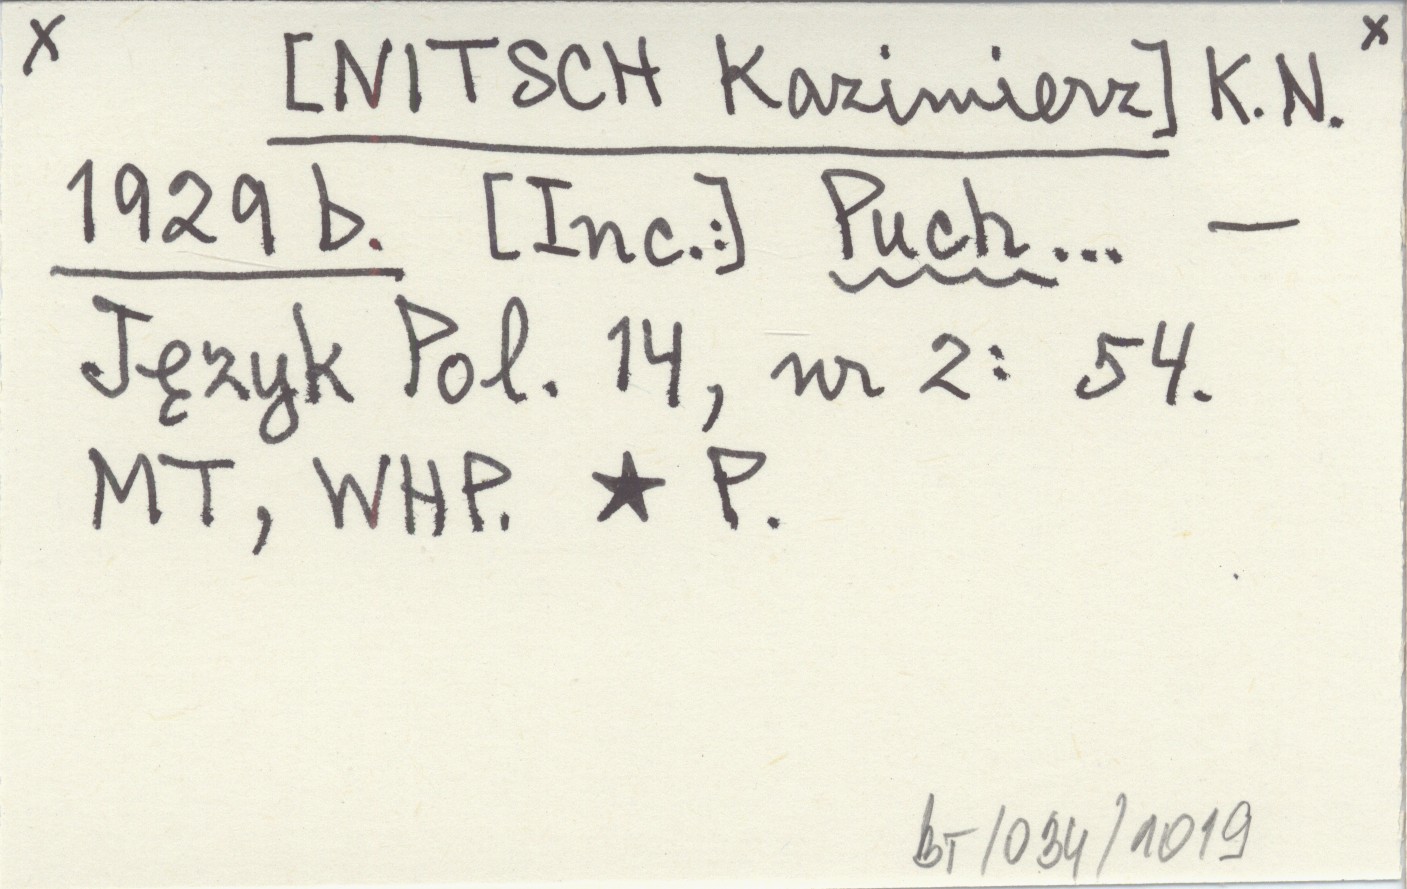 x [NITSCH Kazimierz] K.N. x
1929 b. [Inc.:] Puch... —
Język Pol. 14, nr 2: 54.
MT, WHP. ★ P.
BT/034/1019